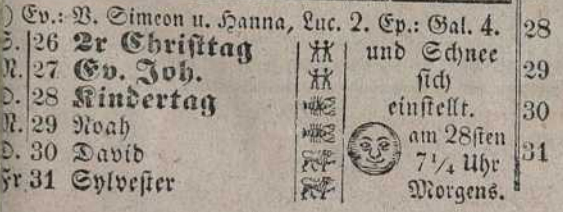 ) Ev.: V. Simeon u. Hanna, Luc. 2. Ep.: Gal. 4. 28
S. 26 2r Christtag und Schnee
N. 27 Ev. Joh. sich 29
D. 28 Kindertag einstellt. 30
M. 29 Noah am 28sten
D. 30 David 7 1/4 Uhr 31
Fr 31 Sylvester Morgens.